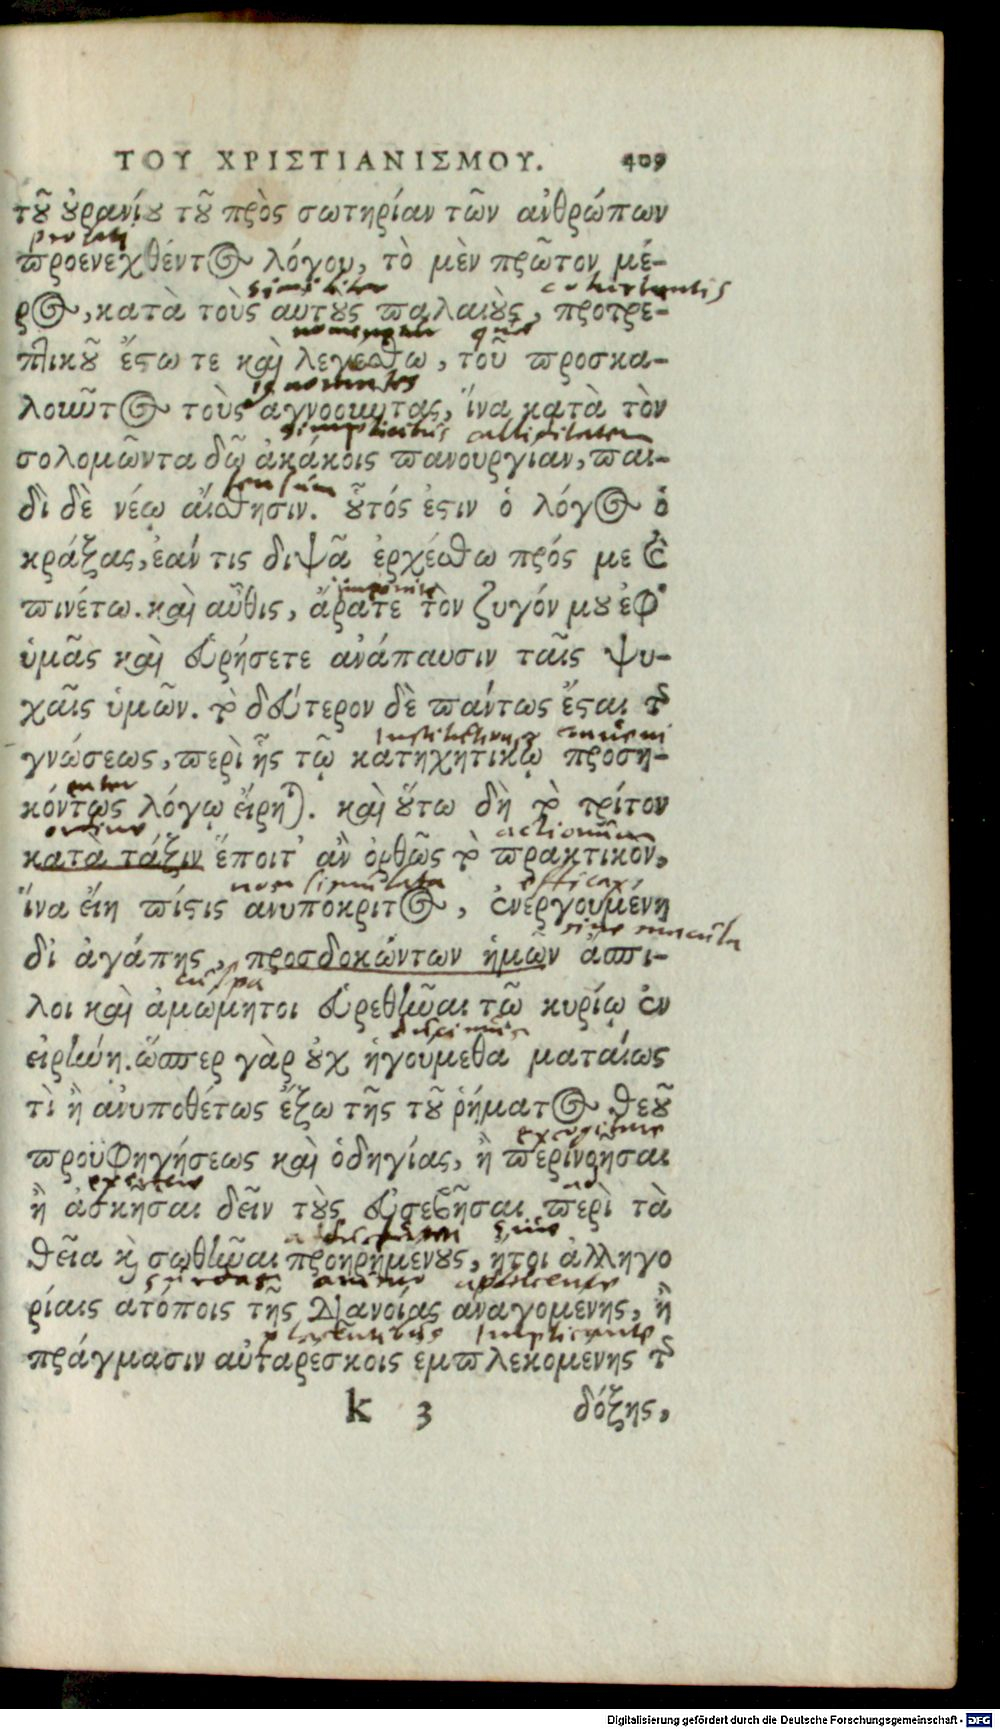 ΤΟΥ ΧΡΙΣΤΙΑΝΙΣΜΟΥ. 409
τοῦ οὐρανίου τοῦ πρὸς σωτηρίαν τῶν ἀνθρώπων
prolati
προενεχθέντος λόγου, τὸ μὲν πρῶτον μέ-
similiter cohortantis
ρος, κατὰ τοὺς αυτοὺς παλαιοὺς, προτρε-
πτικοῦ ἔστω τε καὶ λεγεσθω, τοῦ προσκα-
ignorantes
λοιωῦτος τοὺς αγνοοιωτας, ἵνα κατὰ τὸν
simplicibus calliditatem
σολομῶντα δῷ ἀκάκοις πανουργιαν, παι-
sensum
δὶ δὲ νέῳ αἴσθησιν. οὗτός ἐστιν ὁ λόγος ὁ
κράξας, ἐάν τις διψᾶ ἐρχέσθω πρός με καὶ
πινέτω. καὶ αὖθις, ἄρατε τὸν ζυγόν μου ἐφ᾽
ὑμᾶς καὶ εὑρήσετε ἀνάπαυσιν ταῖς ψυ-
χαῖς ὑμῶν. τὸ δεύτερον δὲ πάντως ἔσται τῆς
γνώσεως, περὶ ἧς τῷ κατηχητικῷ προση-
enter
κόντως λόγῳ εἴρηται. καὶ οὕτω δὴ τὸ τρίτον
ordine actionum
κατὰ τάξιν ἕποιτ᾽ ἂν ὀρθῶς τὸ πρακτικὸν,
non simulata efficax,
ἵνα εἴη πίστις ανυποκριτος, ἐνεργουμένη
sine macula
δι ἀγάπης, προσδοκώντων ἡμῶν ἄσπι-
culpa
λοι καὶ ἀμώμητοι εὑρεθῆναι τῷ κυρίῳ ἐν
εἰρήνῃ. ὥσπερ γὰρ οὐχ ἡγούμεθα ματαίως
τὶ ἢ ἀνυποθέτως ἔξω τῆς τοῦ ῥήματος θεοῦ
excogitare
προϋφηγήσεως καὶ ὁδηγίας, ἢ περινοῆσαι
ἢ ἀσκῆσαι δεῖν τοὺς εὐσεβῆσαι περὶ τὰ
θεῖα καὶ σωθῆναι προῃρημένους, ἤτοι ἀλληγο
ρίαις ατόποις τῆς διανοίας αναγομενης, ἢ
placentibus implicante
πράγμασιν αὐταρέσκοις εμπλεκομενης τῆς
k 3 δόξης,
Digitalisierung gefördert durch die Deutsche Forschungsgemeinschaft - DFG